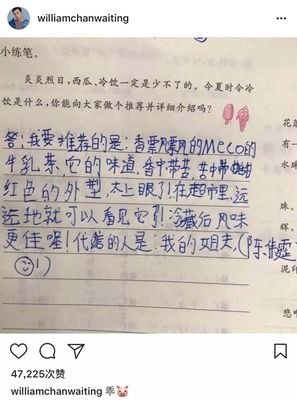 williamchanwaiting
小练笔。
炎炎烈日，西瓜、冷饮一定是少不了的。今夏时令冷
饮是什么，你能向大家做个推荐并详细介绍吗？
答：我要推荐的是：香飘飘的Meco的
牛乳茶，它的味道，香中带苦，苦中带甜
红色的外型，太上眼了！在超市里，远
远地就可以看见它了！冷藏后风味
更佳喔！代言的人是：我的姐夫（陈伟霆
！）
有一
水
珠。
辉。
泥
悲
47,225次赞
williamchanwaiting 乖🐷